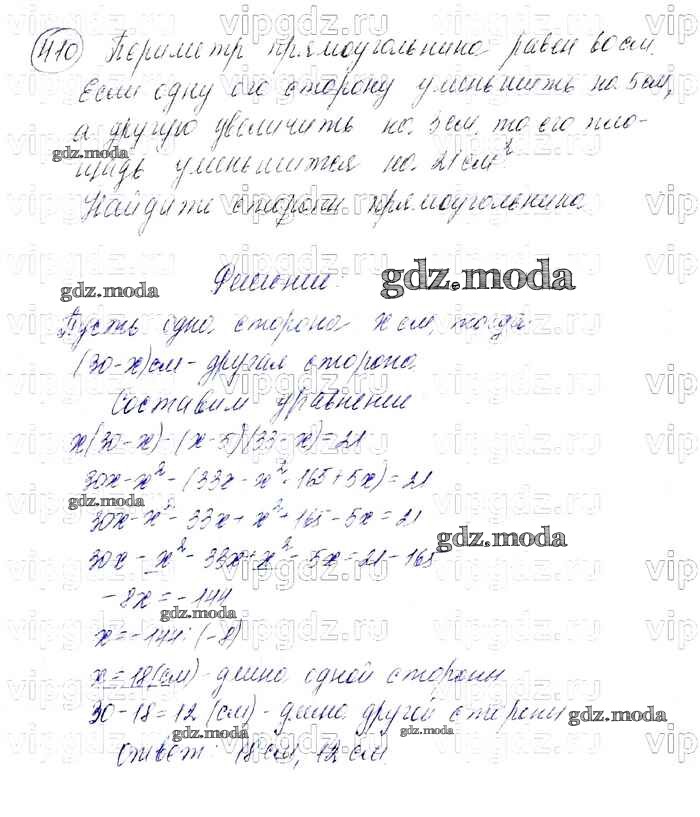 410 Периметр прямоугольника равен 60 см.
Если одну его сторону уменьшить на 5 см,
а другую увеличить на 3 см, то его пло-
gdz.moda
щадь уменьшится на 21 см²
Найдите стороны прямоугольника.
Решение.
gdz.moda
gdz.moda
Пусть одна сторона x см, тогда
(30-x) см - другая сторона.
Составим уравнение
x(30-x)-(x-5)(33-x)=21
30x-x²-(33x-x²-165+5x)=21
gdz.moda
30x-x²-33x+x²+165-5x=21
gdz.moda
30x-x²-33x+x²-5x=21-165
-8x=-144
gdz.moda
x=-144:(-8)
x=18(см)- длина одной стороны
gdz.moda
30-18=12 (см) - длина другой стороны
gdz.moda
gdz.moda
gdz.moda
Ответ: 18 см, 12 см.
vipgdz.ru